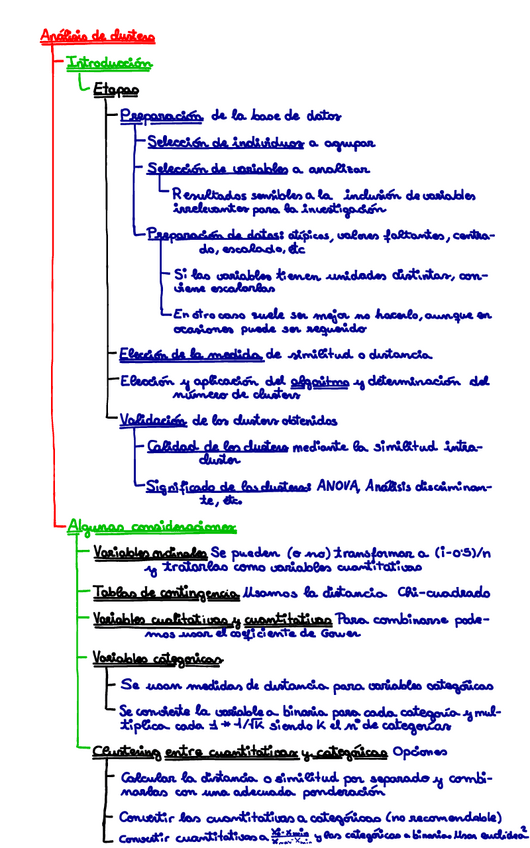 Análisis de clusters
Introducción
Etapas
Preparación de la base de datos
Selección de individuos a agrupar
Selección de variables a analizar
Resultados sensibles a la inclusión de variables
irrelevantes para la investigación
Preparación de datos: atípicos, valores faltantes, centra-
do, escalado, etc
Si las variables tienen unidades distintas, con-
viene escalarlas
En otro caso suele ser mejor no hacerlo, aunque en
ocasiones puede ser requerido
Elección de la medida de similitud o distancia
Elección y aplicación del algoritmo y determinación del
número de clusters
Validación de los clusters obtenidos
Calidad de los clusters mediante la similitud intra-
cluster
Significado de los clusters: ANOVA, Análisis discriminan-
te, etc.
Algunas consideraciones
Variables ordinales Se pueden (o no) transformar a (i-0'5)/n
y tratarlas como variables cuantitativas
Tablas de contingencia Usamos la distancia Chi-cuadrado
Variables cualitativas y cuantitativas Para combinarse pode-
mos usar el coeficiente de Gower
Variables categóricas
Se usan medidas de distancia para variables categóricas
Se convierte la variable a binaria para cada categoría y mul-
tiplica cada 1 * 1/√K siendo K el nº de categorías
Clustering entre cuantitativas y categóricas Opciones
Calcular la distancia o similitud por separado y combi-
narlas con una adecuada ponderación
Convertir las cuantitativas a categóricas (no recomendable)
Convertir cuantitativas a y las categóricas a binarias. Usar euclídea²